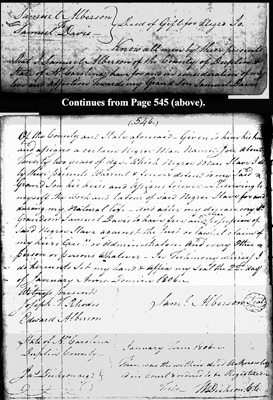 Samuel Alberson
to
Samuel Davis
Deed of Gift for Negro Jo
Know all men by these presents
that I Samuel Alberson of the County of Duplin &
State of N. Carolina, have for and in consideration of my
love and affection towards my Grand Son Samuel Davis
Continues from Page 545 (above).
(546)
Of the County and State aforesaid Given to him his heirs
and assigns a certain Negro Man Named Joe about
Twenty two years of age Which Negro Man Slave I do
by these presents Warrent & forever defend to my said
Grand Son his heirs and assigns forever Reserving to
myself the work and labour of said Negro Slave for and
during my Natural life
Grandson Samuel Davis to have free and possession of
said Negro Slave against the Just or lawful claim of
my heirs Exec.rs or administrators and every other
person or persons whatever In Testimony whereof I
do hereunto Set my hand & affix my Seal the 22d day
of January Anno Domini 1806
Witness present
Joseph T. Rhodes
Edward Alberson
Saml. Alberson Seal
State of No. Carolina
Duplin County
January Term 1806
Then was the within deed Acknowledged
in court ordered to be Registered
Test
W. Dickson Clk